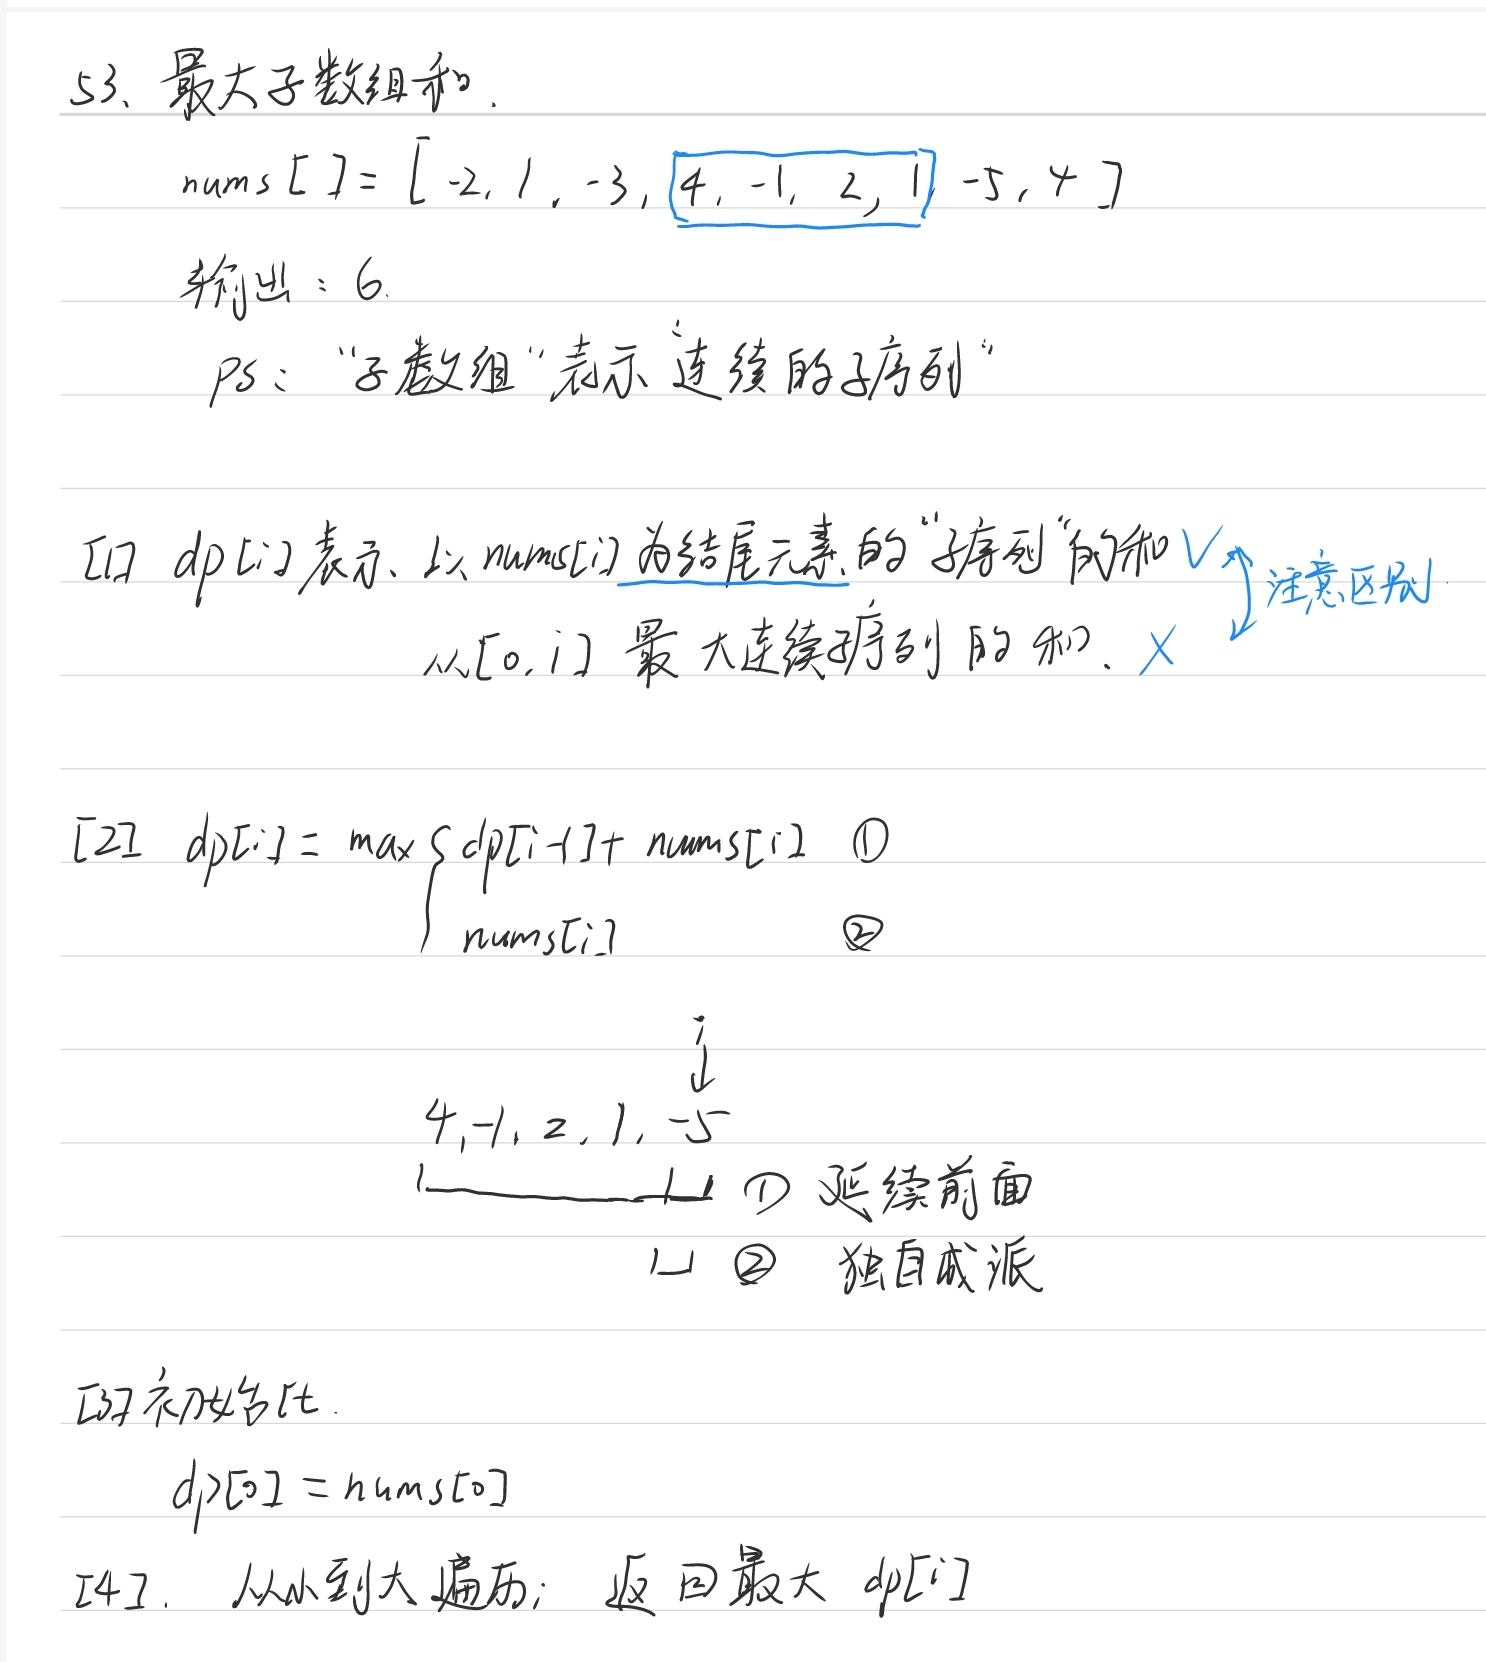 53、最大子数组和.
nums[ ] = [ -2, 1, -3, 4, -1, 2, 1, -5, 4 ]
输出：6.
ps：“子数组”表示“连续的子序列”
[1] dp[i]表示、以nums[i]为结尾元素的“子序列”的和 √
注意区别
从[0,i] 最大连续子序列的和. ×
[2] dp[i] = max { dp[i-1] + nums[i] ①
nums[i] ②
i
4, -1, 2, 1, -5
① 延续前面
② 独自成派
[3] 初始化.
dp[0] = nums[0]
[4]. 从小到大遍历； 返回最大 dp[i]